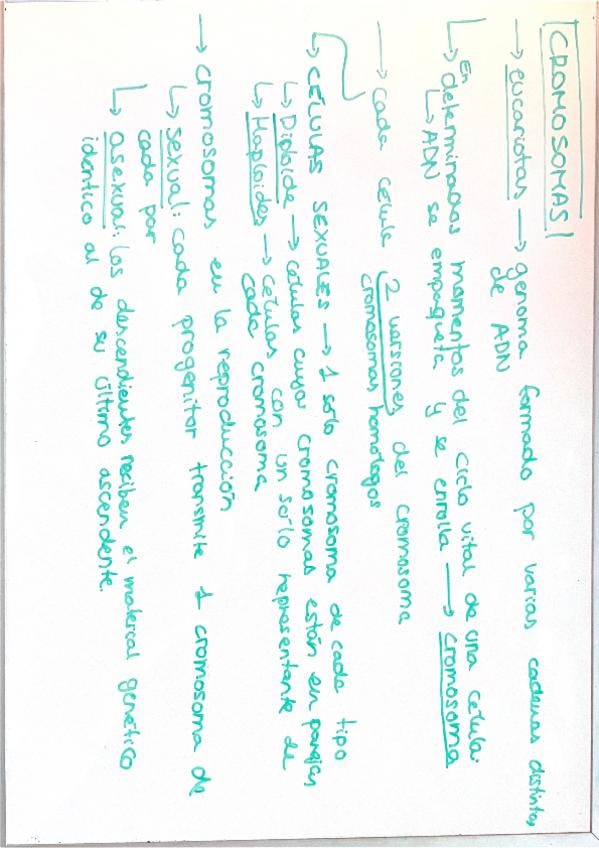 CROMOSOMAS
→ eucariotas → genoma formado por varias cadenas distintas
de ADN
↳ En determinados momentos del ciclo vital de una célula:
↳ ADN se empaqueta y se enrolla → cromosoma
→ cada célula 2 versiones del cromosoma
cromosomas homólogos
↳ CÉLULAS SEXUALES → 1 sólo cromosoma de cada tipo
↳ Diploide → células cuyos cromosomas están en parejas
↳ Haploides → células con un sólo representante de
cada cromosoma
→ cromosomas en la reproducción
↳ sexual: cada progenitor transmite 1 cromosoma de
cada par
↳ asexual: los descendientes reciben el material genético
identico al de su último ascendente.